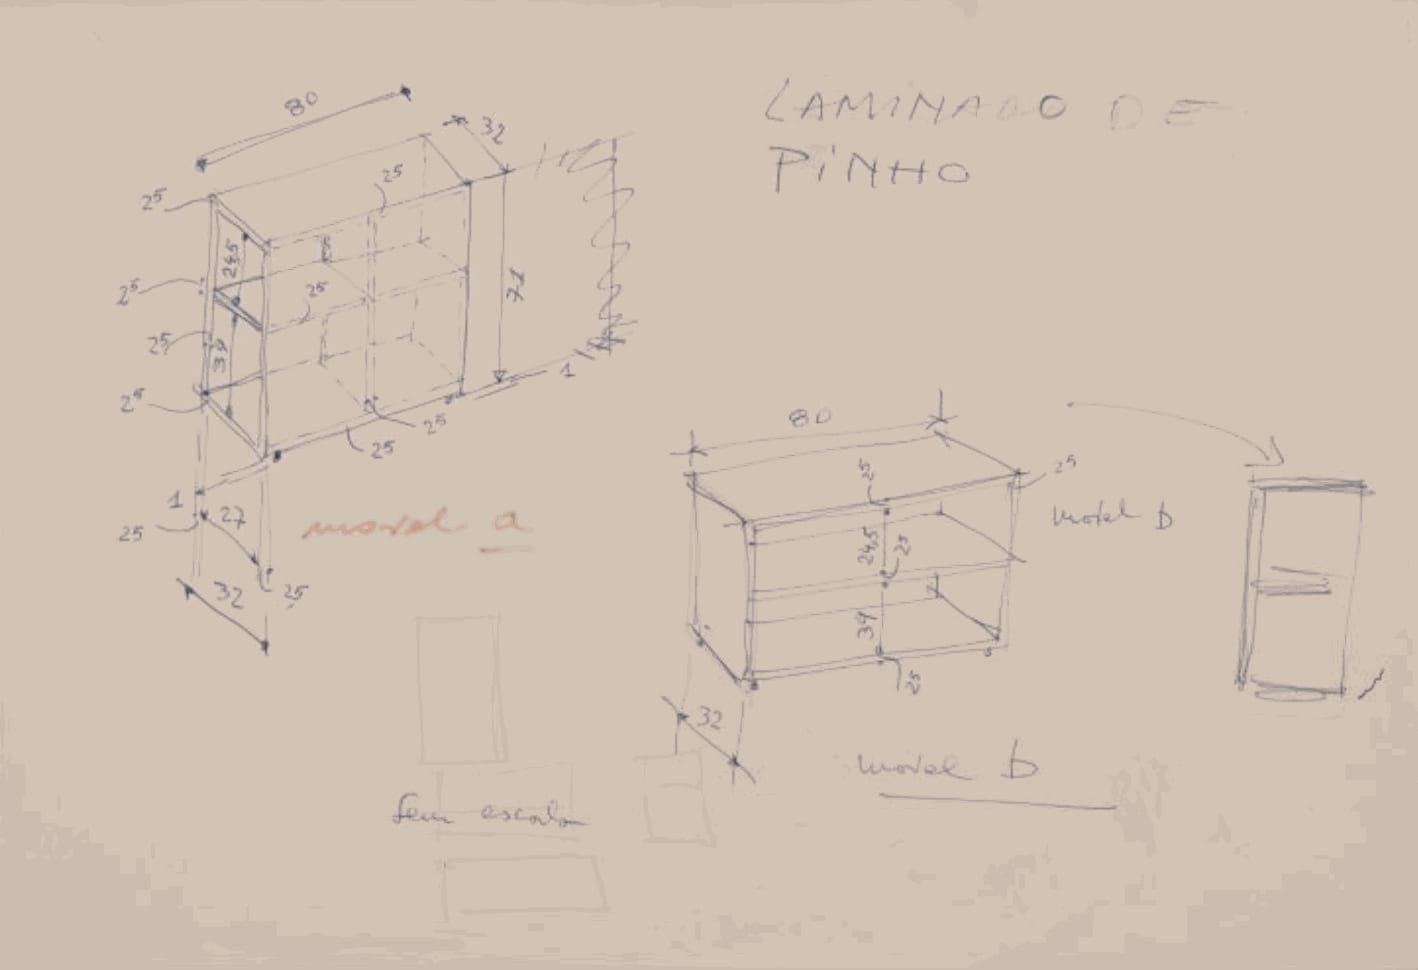 80
32
LAMINADO DE
PINHO
25
25
24,5
71
25
25
25
39
25
1
25
25
1
27
25
movel a
32
25
80
25
25
movel b
24,5
25
39
25
32
movel b
Sem escala